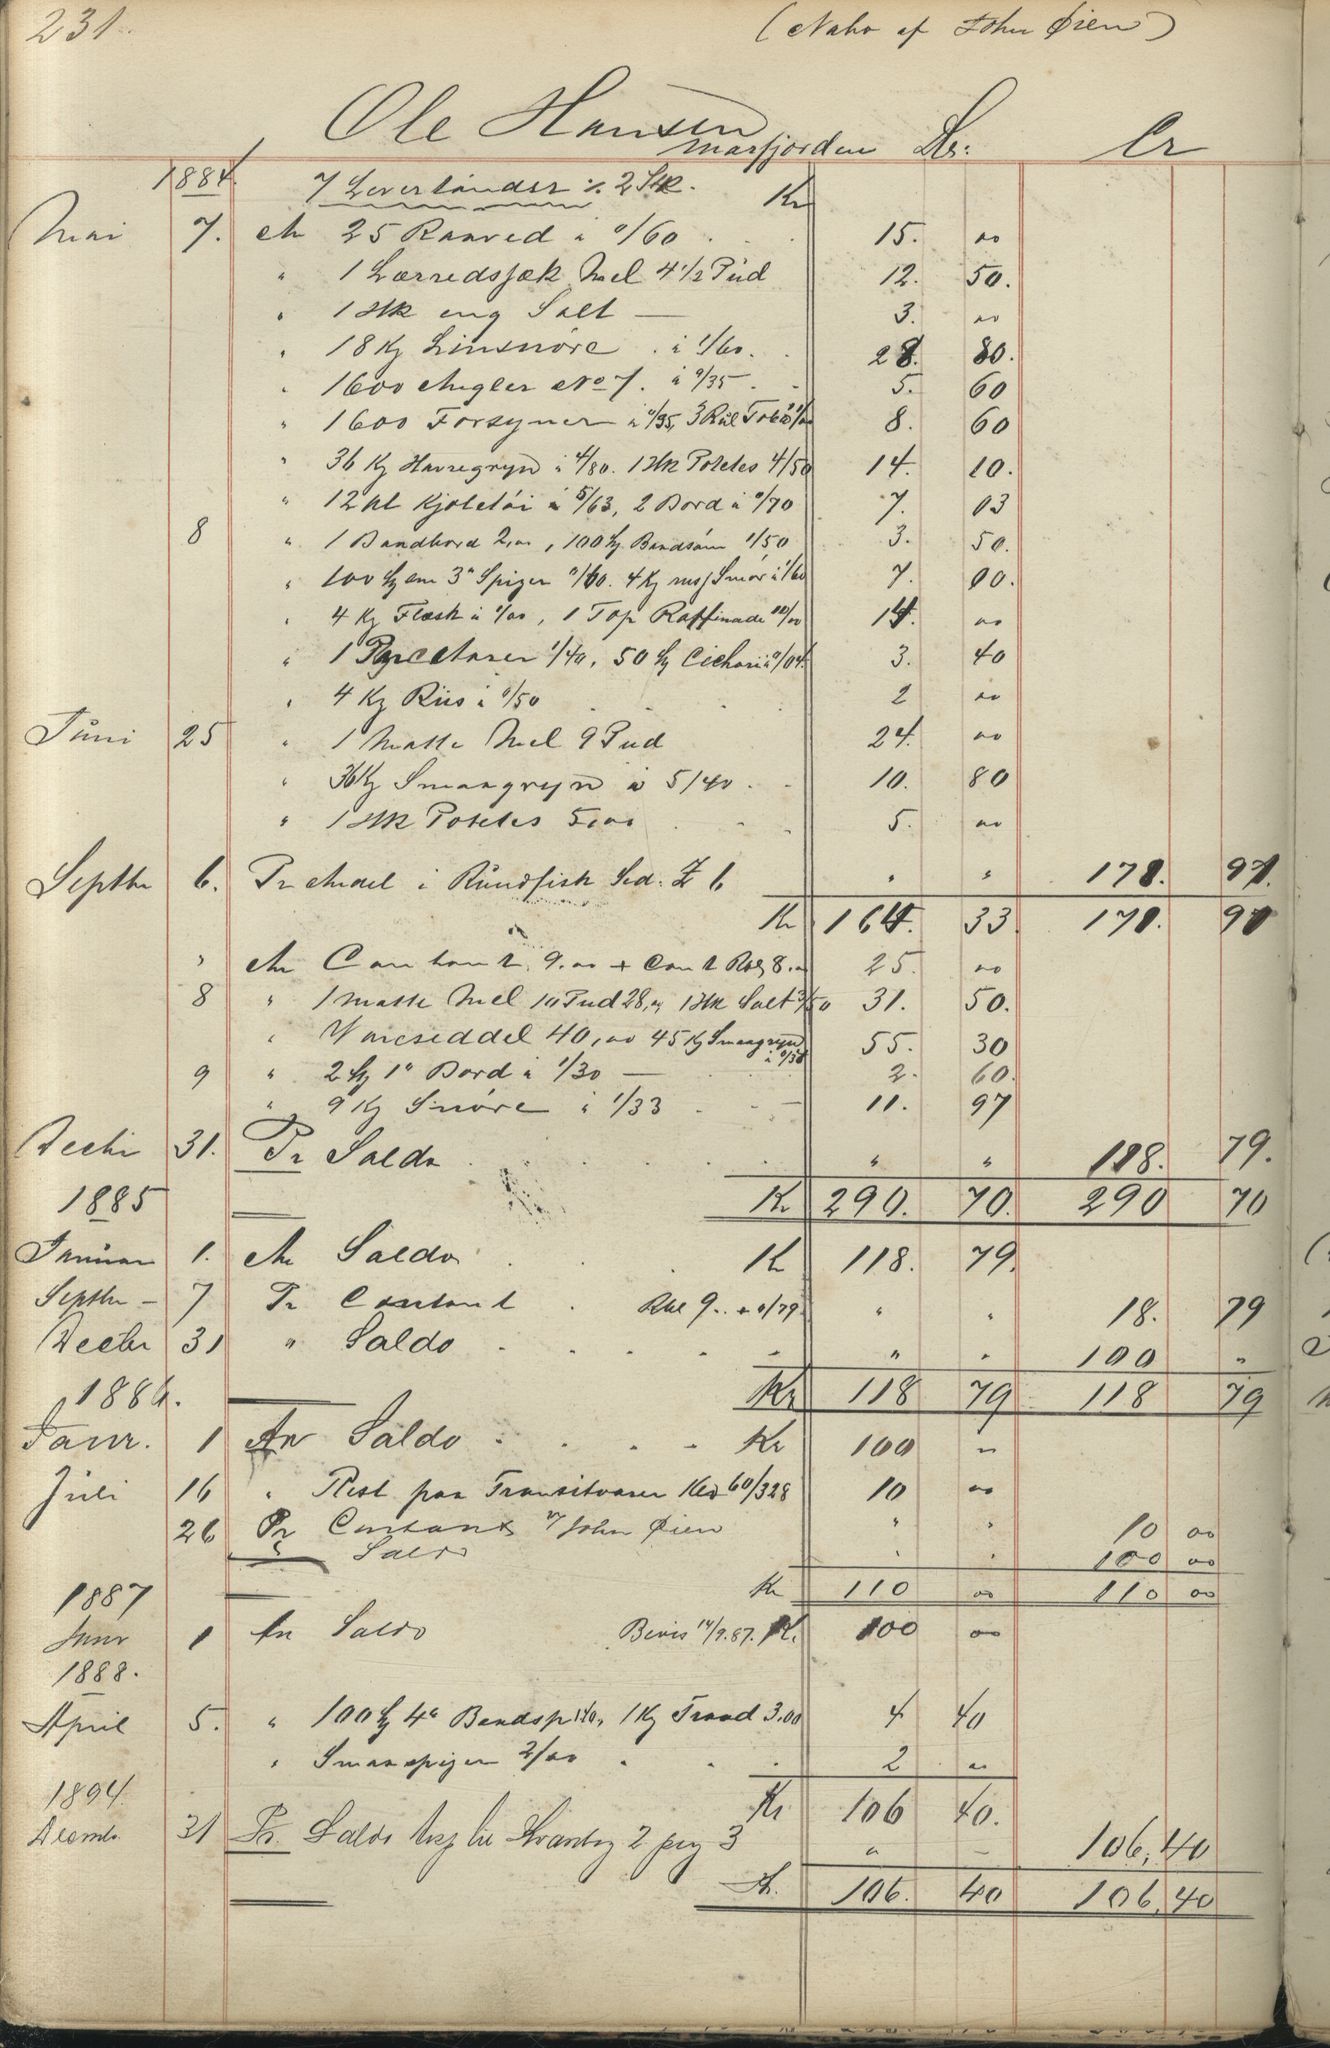 231.
(Nabo af John Øien)
Ole Hansen
Masfjorden Dr: Cr
1884. 7 Levertønder % 2 Stk. Kr
Mai 7. An 25 Raaved à 0/60 15. 00
" 1 Lærredssæk Mel 4 1/2 Pud 12. 50.
" 1 Htk eng Salt 3. 00
" 18 Kg Linsnøre à 1/60. 28. 80.
" 1600 Angler No 7. à 0/35 5. 60
" 1600 Forsyner à 0/35, 3 Rul Tobak 8. 60
" 36 Kg Havregryn à 4/80. 1 Htk Potetes 4/50 14. 10.
" 12 Al Kjoletøi à 5/63, 2 Bord à 0/70 7. 03
8 " 1 Baadbord 2,00, 100 Stk Baadsøm 1/50 3. 50.
" 100 Stk 3" Spiger 0/60. 4 Kg russ Smør à 1/60 7. 00.
" 4 Kg Flesk à 1/00, 1 Top Raffinade 10/00 14. 00
" 1/40, 50 Stk Cichori à 0/04. 3. 40
" 4 Kg Riis à 0/50 2 00
Juni 25 " 1 Matte Mel 9 Pud 24. 00
" 36 Kg Smaagryn à 5/40 10. 80
" 1 Htk Potetes 5,00 5. 00
Septbr 6. Pr Andel i Rundfisk Sed. Z 6 " " 178. 91.
Kr 164. 33. 178. 91
" An Contant 9.00 + Cont Rbl 8.00 25. 00
8 " 1 Matte Mel 10 Pud 28,00 1 Htk Salt 3/50 31. 50.
" Vareseddel 40,00 45 Kg Smaagryn à 0/34 55. 30
9 " 2 Stk 1" Bord à 1/30 2. 60.
" 9 Kg Snøre à 1/33 11. 97
Decbr 31. Pr Saldo " " 118. 79.
1885 Kr 290. 70. 290 70
Januar 1. An Saldo Kr 118. 79.
Septbr 7 Pr Contant Rbl 9.. + 0/79 " " 18. 79
Decbr 31 " Saldo " " 100 "
1886. Kr 118 79 118 79
Janr. 1 An Saldo Kr 100 "
Juli 16 " Rest paa Transitvarer Kladd 60/328 10 00
26 Pr Contant v/ John Øien " " 10 00
" Saldo " " 100 00
1887 Kr 110 00 110 00
Janr 1 An Saldo Bevis 14/9.87. Kr. 100 00
1888.
April 5. " 100 Stk 4" Baadsp 1.40, 1 Kg Traad 3.00 4 40
" Smaaspiger 2/00 2 00
1894 Kr 106 40.
Decmb. 31 Pr. Saldo 2 pag 3 " - 106,40
Kr. 106. 40 106,40